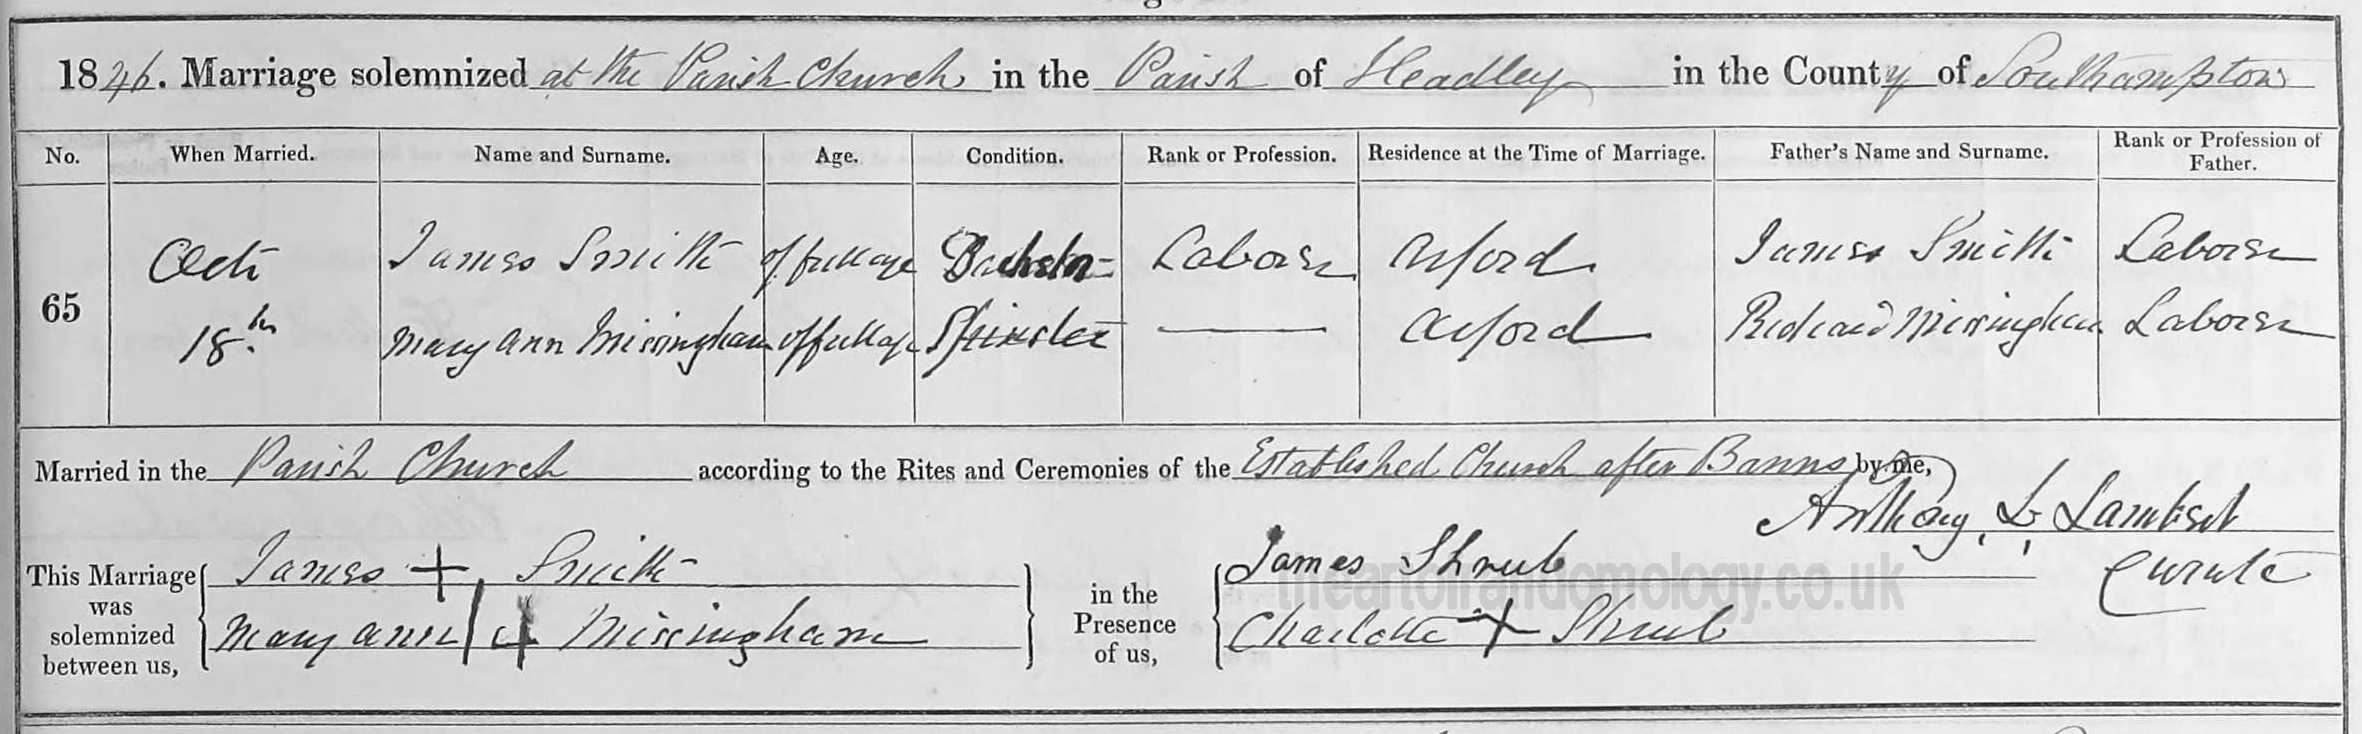 1846. Marriage solemnized at the Parish Church in the Parish of Headley in the County of Southampton
No. When Married. Name and Surname. Age. Condition. Rank or Profession. Residence at the Time of Marriage. Father's Name and Surname. Rank or Profession of Father.
65 Oct 18th
James Smith of full age Bachelor Laborer Arford James Smith Laborer
Mary Ann Missingham of full age Spinster — Arford Richard Missingham Laborer
Married in the Parish Church according to the Rites and Ceremonies of the Established Church after Banns by me,
Anthony L. Lambert
Curate
This Marriage was solemnized between us,
James + Smith
Mary Ann + Missingham
in the Presence of us,
James Shrub
Charlotte + Shrub
theartofrandomology.co.uk